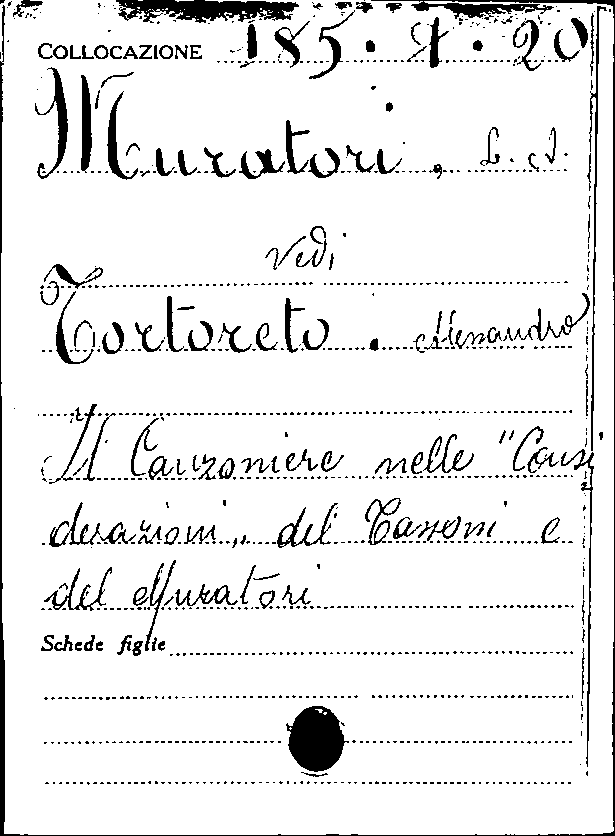 COLLOCAZIONE 185. 4. 20
Muratori, L. A.
Vedi
Tortoreto. Alessandro
Il Canzoniere nelle "Consi
derazioni" del Tassoni e
del Muratori
Schede figlie